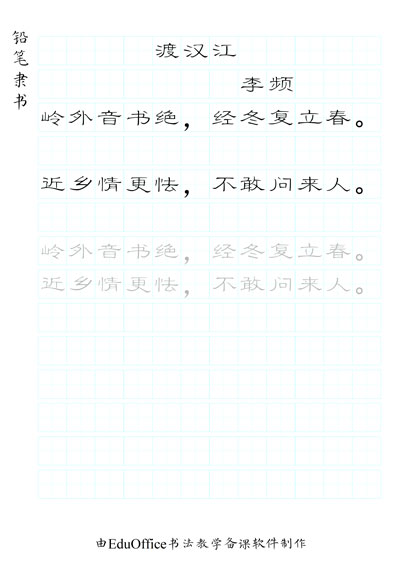 铅笔隶书
渡汉江
李频
岭外音书绝，经冬复立春。
近乡情更怯，不敢问来人。
岭外音书绝，经冬复立春。
近乡情更怯，不敢问来人。
由EduOffice书法教学备课软件制作